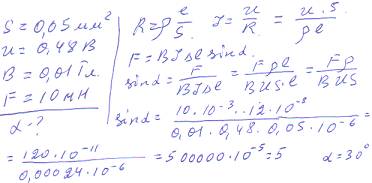 S = 0,05 мм²
u = 0,48 В
B = 0,01 Тл.
F = 10 мН
α - ?
R = ρ l/S. I = u/R = u.s/ρl
F = BIΔl sinα.
sinα = F/BIΔl = Fρl/BUS.l = Fρ/BUS
sinα = 10.10⁻³..12.10⁻⁸/0,01.0,48.0,05.10⁻⁶ =
= 120.10⁻¹¹/0,00024.10⁻⁶ = 500000.10⁻⁵ = 5 α = 30°